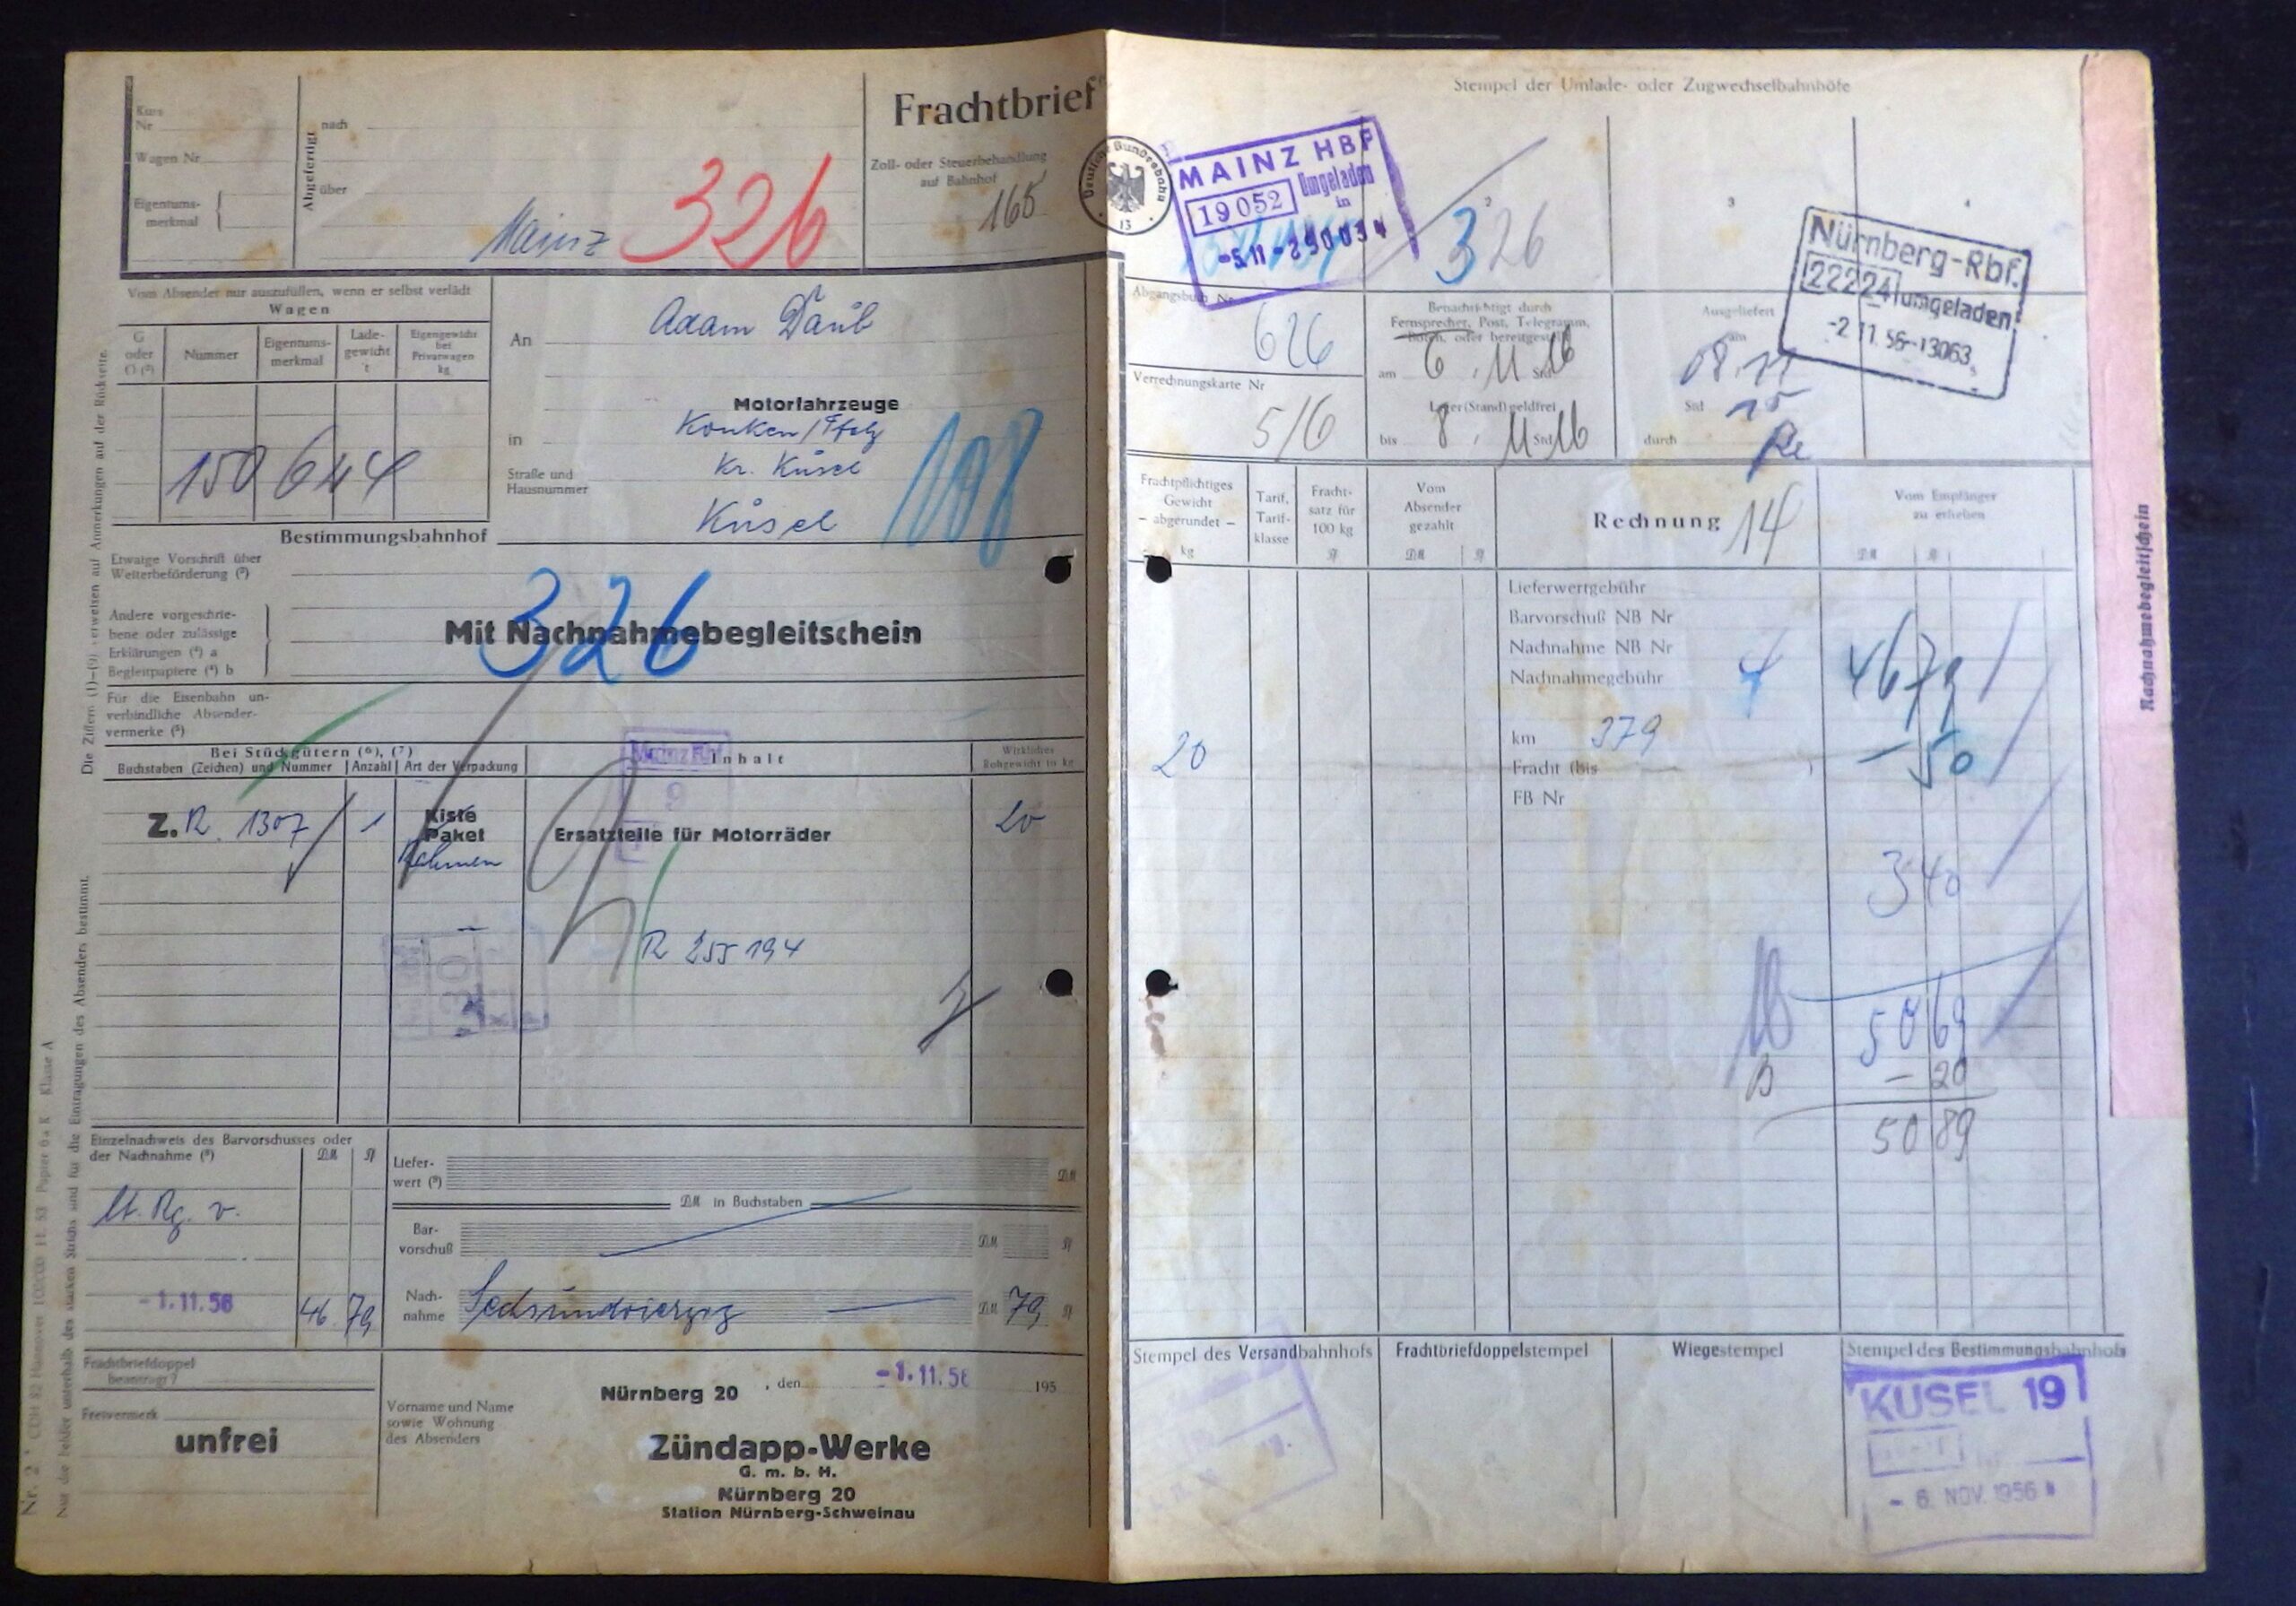 Frachtbrief
Kurs
Nr
Wagen Nr
Eigentums-
merkmal
Abgefertigt
nach
über
Mainz 326
Zoll- oder Steuerbehandlung
auf Bahnhof
165
Deutsche Bundesbahn
13
Vom Absender nur auszufüllen, wenn er selbst verlädt
Wagen
G
oder
Nummer
Eigentums-
merkmal
Lade-
gewicht
t
Eigengewicht
bei
Privatwagen
kg
150 644
An
Adam Daub
Motorfahrzeuge
in
Konken/Pfalz
Straße und
Hausnummer
Kr. Kusel
Kusel
108
Bestimmungsbahnhof
Etwaige Vorschrift über
Weiterbeförderung (³)
Andere vorgeschrie-
bene oder zulässige
Erklärungen (⁴) a
Begleitpapiere (⁴) b
Mit Nachnahmebegleitschein
326
Für die Eisenbahn un-
verbindliche Absender-
vermerke (⁵)
Bei Stückgütern (⁶), (⁷)
Buchstaben (Zeichen) und Nummer
Anzahl
Art der Verpackung
Inhalt
Wirkliches
Rohgewicht in kg
Z. R. 1307
1
Kiste
Paket
Rahmen
Ersatzteile für Motorräder
20
9
R 255 194
Einzelnachweis des Barvorschusses oder
der Nachnahme (⁸)
DM
Pf
lt. Rg. v.
-1.11.56
46 79
Liefer-
wert (⁹)
DM
DM in Buchstaben
Bar-
vorschuß
DM
Pf
Nach-
nahme
Sechsundvierzig
DM 79 Pf
Frachtbriefdoppel
beantragt?
Freivermerk
unfrei
Nürnberg 20, den -1.11.56 195
Vorname und Name
sowie Wohnung
des Absenders
Zündapp-Werke
G. m. b. H.
Nürnberg 20
Station Nürnberg-Schweinau
Die Ziffern (1)-(9) verweisen auf Anmerkungen auf der Rückseite.
Nur die Felder unterhalb des starken Strichs sind für die Eintragungen des Absenders bestimmt.
Stempel der Umlade- oder Zugwechselbahnhöfe
MAINZ HBF
19052 Umgeladen
in
2
326
3
4
Nürnberg-Rbf.
22224 umgeladen
-2.11.56-13063
Abgangsbuch Nr
626
Verrechnungskarte Nr
516
Benachrichtigt durch
Fernsprecher, Post, Telegramm,
Boten, oder bereitgestellt
am 6. 11 Std 16
Lager(Stand)geldfrei
bis 8. 11 Std 16
Ausgeliefert
am
08.11
Std 15
durch
Frachtpflichtiges
Gewicht
- abgerundet -
kg
Tarif,
Tarif-
klasse
Fracht-
satz für
100 kg
Pf
Vom
Absender
gezahlt
DM
Pf
Rechnung 14
Vom Empfänger
zu erheben
DM
Pf
Lieferwertgebühr
Barvorschuß NB Nr
Nachnahme NB Nr
4
46 79
Nachnahmegebühr
20
km 379
- 50
Fracht (bis )
FB Nr
3 40
50 69
- 20
50 89
Nachnahmebegleitschein
Stempel des Versandbahnhofs
Frachtbriefdoppelstempel
Wiegestempel
Stempel des Bestimmungsbahnhofs
KUSEL 19
- 6. NOV. 1956